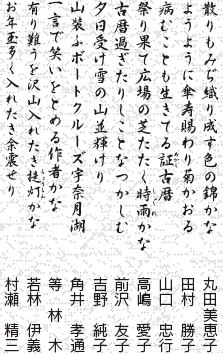 散りもみぢ織り成す色の錦かな 丸田美恵子
ようように傘寿賜わり菊かおる 田村 勝子
病むことも生きてる証古暦 山口 忠行
祭り果て広場の芝たたく時雨かな 高嶋 愛子
古暦過ぎたりしことなつかしむ 前沢 友子
夕日受け雪の山並輝けり 吉野 純子
山装ふボートクルーズ宇奈月湖 角井 孝通
一言で笑いをとめる作者かな 等 林木
有り難うを沢山入れたき提灯かな 若林 伊義
お年玉多く入れたき余震せり 村瀬 精三